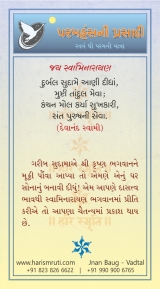 પરમહંસની પ્રસાદી
જય સ્વામિનારાયણ
દુર્બલ સુદામે આણી દીધાં,
મુષ્ટી તાંદુલ મેવા;
કંચન મોલ કર્યાં સુખકારી,
સંત પુરુષની સેવા.
(દેવાનંદ સ્વામી)
ગરીબ સુદામાએ શ્રી કૃષ્ણ ભગવાનને
મૂઠી પૌંવા આપ્યા તો એમણે એનું ઘર
સોનાનું બનાવી દીધું! એમ આપણે દાસત્વ
ભાવથી સ્વામિનારાયણ ભગવાનમાં પ્રીતિ
કરીએ તો આપણા ચૈતન્યમાં પ્રકાશ થાય
છે.
www.harismruti.com Jnan Baug - Vadtal
+91 823 826 6622 | +91 990 900 6765